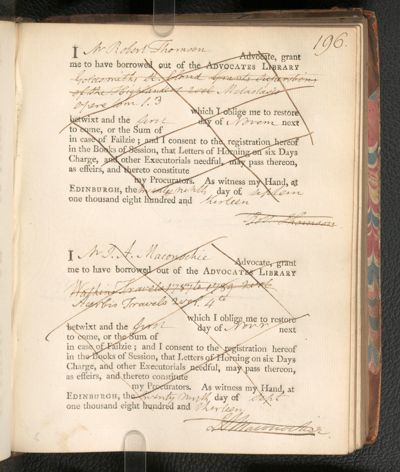 196.
I Mr Robert Thomson Advocate, grant
me to have borrowed out of the ADVOCATES LIBRARY
Goldsmiths Grants Superstitions
of the Highlanders 2 vol
opera 1.3
which I oblige me to restore
betwixt and the first day of Novem next
to come, or the Sum of
in case of Failzie; and I consent to the registration hereof
in the Books of Session, that Letters of Horning on six Days
Charge, and other Executorials needful, may pass thereon,
as effeirs, and thereto constitute
my Procurators. As witness my Hand, at
EDINBURGH, the twenty ninth day of Septem
one thousand eight hundred and thirteen
Robt Thomson
I Mr J. A. Maconochie Advocate, grant
me to have borrowed out of the ADVOCATES LIBRARY
Travels 2 vol. 4to
which I oblige me to restore
betwixt and the first day of Novr next
to come, or the Sum of
in case of Failzie; and I consent to the registration hereof
in the Books of Session, that Letters of Horning on six Days
Charge, and other Executorials needful, may pass thereon,
as effeirs, and thereto constitute
my Procurators. As witness my Hand, at
EDINBURGH, the twenty ninth day of Sept
one thousand eight hundred and thirteen
Maconochie